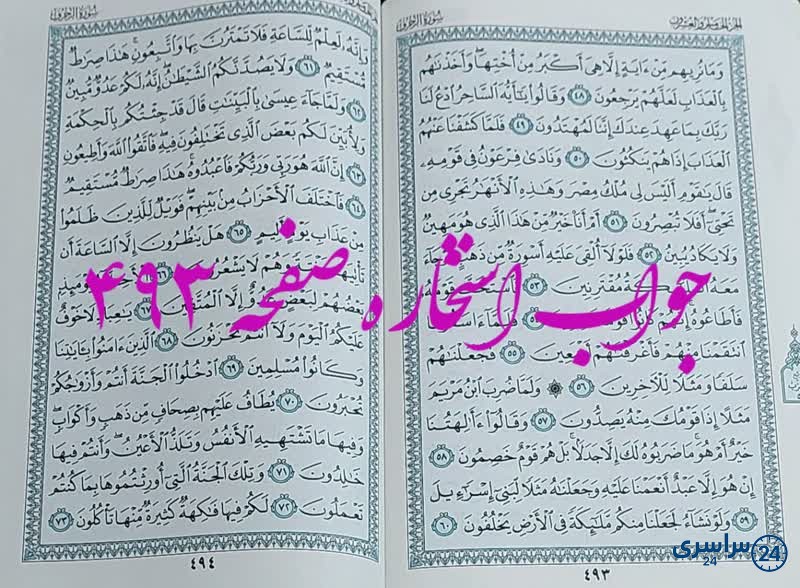 الجزء الخامس والعشرون
سورة الزخرف
وَمَا نُرِيهِم مِّنْ ءَايَةٍ إِلَّا هِىَ أَكْبَرُ مِنْ أُخْتِهَا وَأَخَذْنَٰهُم
بِالْعَذَابِ لَعَلَّهُمْ يَرْجِعُونَ ٤٨ وَقَالُوا يَٰٓأَيُّهَ السَّاحِرُ ادْعُ لَنَا
رَبَّكَ بِمَا عَهِدَ عِندَكَ إِنَّنَا لَمُهْتَدُونَ ٤٩ فَلَمَّا كَشَفْنَا عَنْهُمُ
الْعَذَابَ إِذَا هُمْ يَنكُثُونَ ٥٠ وَنَادَىٰ فِرْعَوْنُ فِى قَوْمِهِۦ
قَالَ يَٰقَوْمِ أَلَيْسَ لِى مُلْكُ مِصْرَ وَهَٰذِهِ الْأَنْهَٰرُ تَجْرِى مِن
تَحْتِىٓ أَفَلَا تُبْصِرُونَ ٥١ أَمْ أَنَا۠ خَيْرٌ مِّنْ هَٰذَا الَّذِى هُوَ مَهِينٌ
وَلَا يَكَادُ يُبِينُ ٥٢ فَلَوْلَآ أُلْقِىَ عَلَيْهِ أَسْوِرَةٌ مِّن ذَهَبٍ جَآءَ
مَعَهُ مُقْتَرِنِينَ ٥٣ قَوْمَهُۥ
فَأَطَاعُوهُ إِنَّهُمْ كَانُوا قَوْمًا فَلَمَّآ
انتَقَمْنَا مِنْهُمْ فَأَغْرَقْنَٰهُمْ أَجْمَعِينَ ٥٥ فَجَعَلْنَٰهُمْ
سَلَفًا وَمَثَلًا لِّلْءَاخِرِينَ ٥٦ وَلَمَّا ضُرِبَ ابْنُ مَرْيَمَ
مَثَلًا إِذَا قَوْمُكَ مِنْهُ يَصِدُّونَ ٥٧ وَقَالُوٓا ءَأَٰلِهَتُنَا
خَيْرٌ أَمْ هُوَ مَا ضَرَبُوهُ لَكَ إِلَّا جَدَلًۢا بَلْ هُمْ قَوْمٌ خَصِمُونَ ٥٨
إِنْ هُوَ إِلَّا عَبْدٌ أَنْعَمْنَا عَلَيْهِ وَجَعَلْنَٰهُ مَثَلًا لِّبَنِىٓ إِسْرَٰٓءِيلَ
٥٩ وَلَوْ نَشَآءُ لَجَعَلْنَا مِنكُم مَّلَٰٓئِكَةً فِى الْأَرْضِ يَخْلُفُونَ ٦٠
٤٩٣
سورة الزخرف
وَإِنَّهُۥ لَعِلْمٌ لِّلسَّاعَةِ فَلَا تَمْتَرُنَّ بِهَا وَاتَّبِعُونِ هَٰذَا صِرَٰطٌ
مُّسْتَقِيمٌ ٦١ وَلَا يَصُدَّنَّكُمُ الشَّيْطَٰنُ إِنَّهُۥ لَكُمْ عَدُوٌّ مُّبِينٌ
٦٢ وَلَمَّا جَآءَ عِيسَىٰ بِالْبَيِّنَٰتِ قَالَ قَدْ جِئْتُكُم بِالْحِكْمَةِ
وَلِأُبَيِّنَ لَكُم بَعْضَ الَّذِى تَخْتَلِفُونَ فِيهِ فَاتَّقُوا اللَّهَ وَأَطِيعُونِ
٦٣ إِنَّ اللَّهَ هُوَ رَبِّى وَرَبُّكُمْ فَاعْبُدُوهُ هَٰذَا صِرَٰطٌ مُّسْتَقِيمٌ
٦٤ فَاخْتَلَفَ الْأَحْزَابُ مِنۢ بَيْنِهِمْ فَوَيْلٌ لِّلَّذِينَ ظَلَمُوا
مِنْ عَذَابِ يَوْمٍ أَلِيمٍ ٦٥ هَلْ يَنظُرُونَ إِلَّا السَّاعَةَ أَن
تَأْتِيَهُم وَهُمْ لَا يَشْعُرُونَ ٦٦ يَوْمَئِذٍۭ
بَعْضُهُمْ لِبَعْضٍ عَدُوٌّ إِلَّا الْمُتَّقِينَ ٦٧ يَٰعِبَادِ لَا خَوْفٌ
عَلَيْكُمُ الْيَوْمَ وَلَآ أَنتُمْ تَحْزَنُونَ ٦٨ الَّذِينَ ءَامَنُوا بِـَٔايَٰتِنَا
وَكَانُوا مُسْلِمِينَ ٦٩ ادْخُلُوا الْجَنَّةَ أَنتُمْ وَأَزْوَٰجُكُمْ
تُحْبَرُونَ ٧٠ يُطَافُ عَلَيْهِم بِصِحَافٍ مِّن ذَهَبٍ وَأَكْوَابٍ
وَفِيهَا مَا تَشْتَهِيهِ الْأَنفُسُ وَتَلَذُّ الْأَعْيُنُ وَأَنتُمْ فِيهَا
خَٰلِدُونَ ٧١ وَتِلْكَ الْجَنَّةُ الَّتِىٓ أُورِثْتُمُوهَا بِمَا كُنتُمْ
تَعْمَلُونَ ٧٢ لَكُمْ فِيهَا فَٰكِهَةٌ كَثِيرَةٌ مِّنْهَا تَأْكُلُونَ ٧٣
٤٩٤
جواب استخاره صفحه ۴۹۳
سراسری 24
24